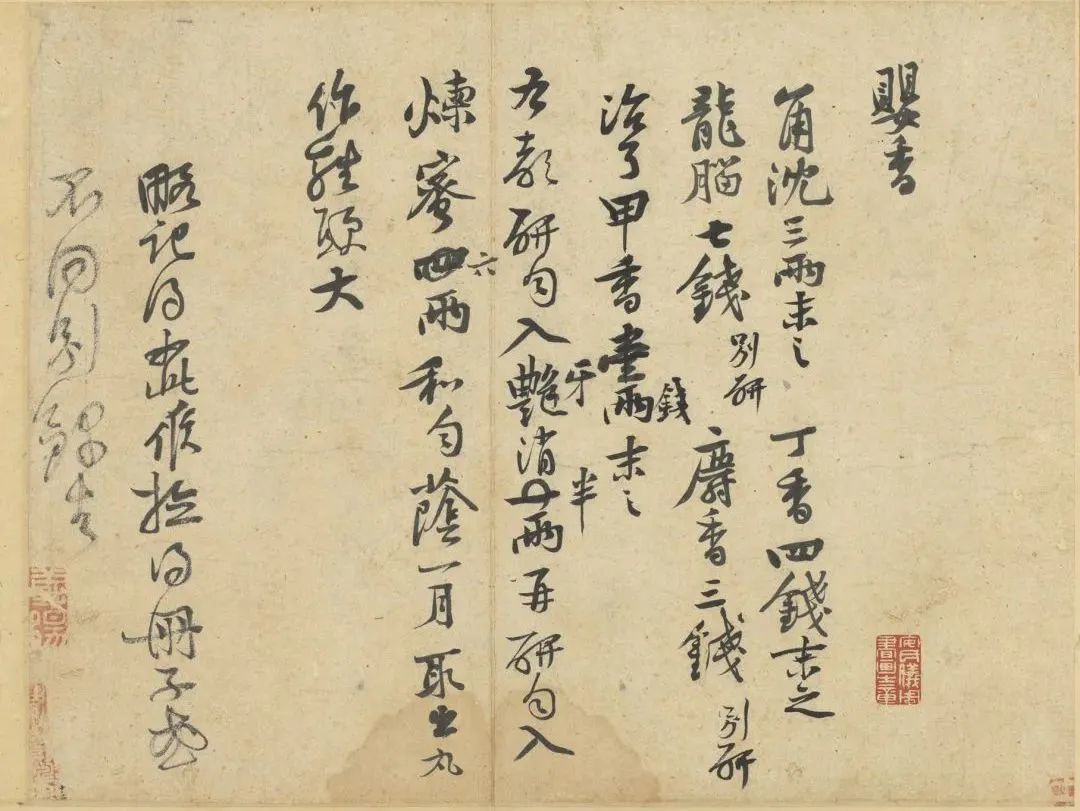 嬰香
角沈三兩末之 丁香四錢末之
龍腦七錢別研 麝香三錢別研
治了甲香壹兩錢末之
右都研勻入艷牙消半兩再研勻入
煉蜜四六兩和勻蔭一月取出丸
作雞頭大
略記得如此候檢得冊子或
不同別錄去
安儀周
書畫之章